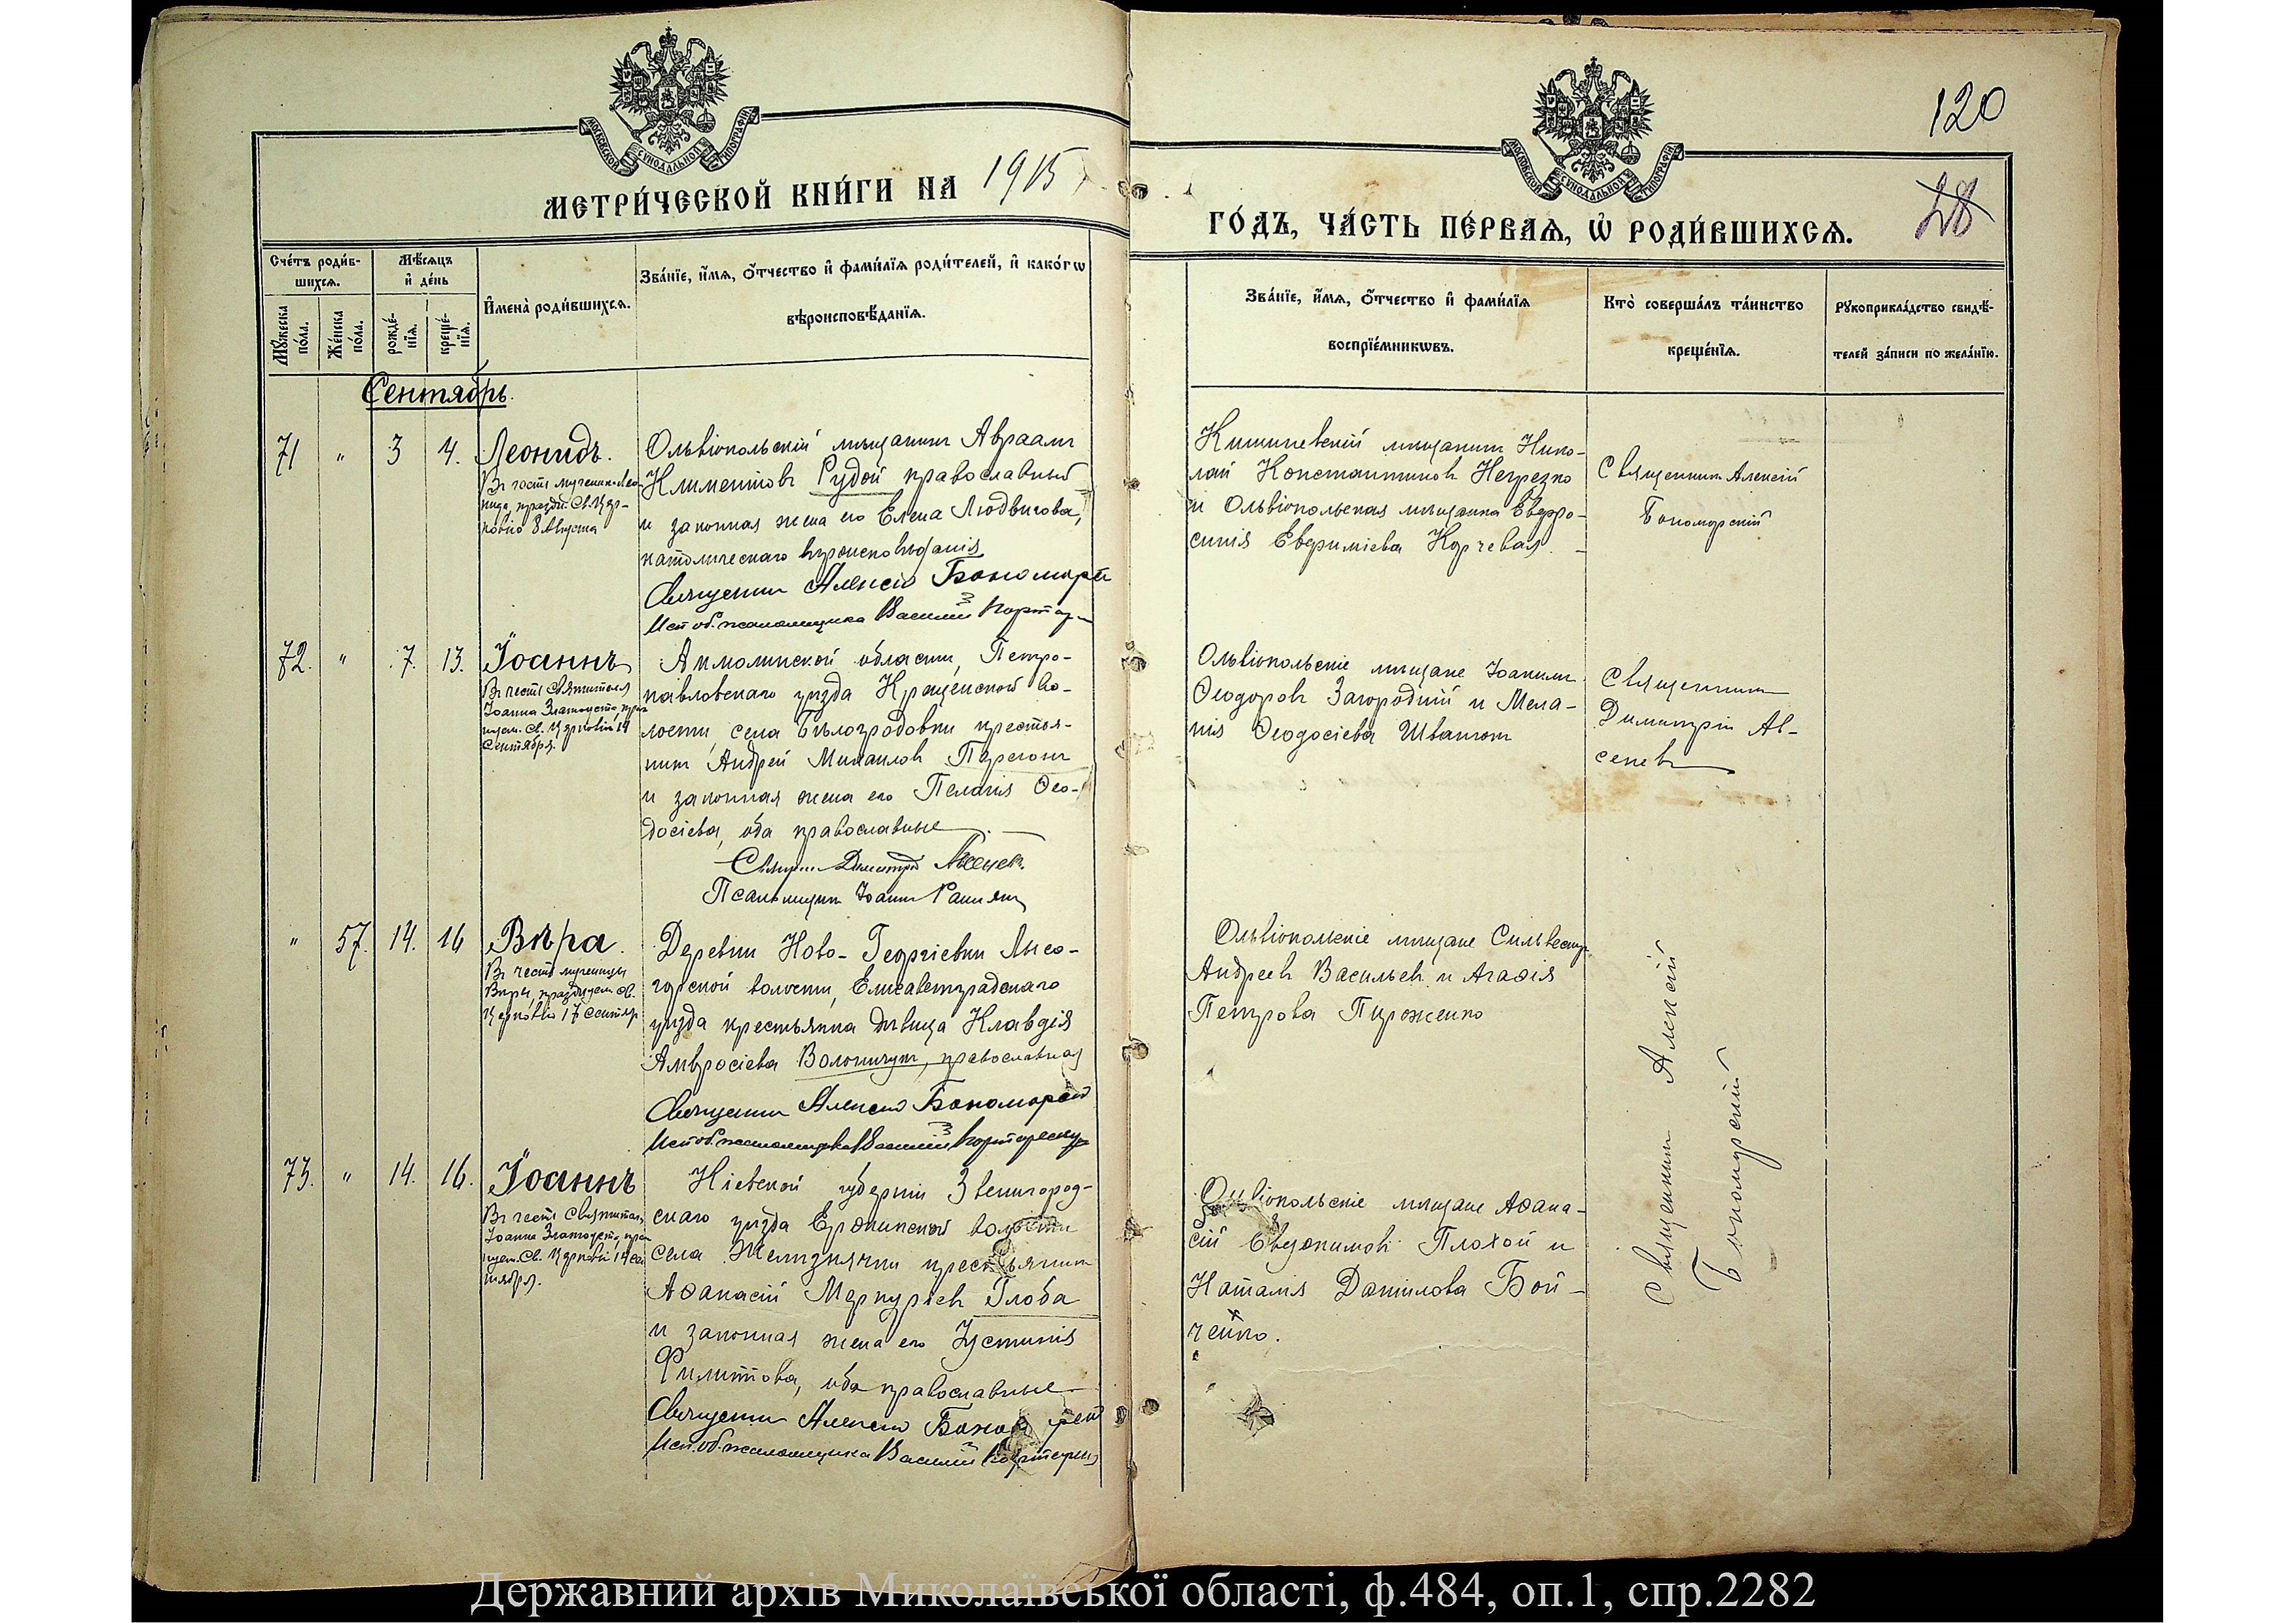 120
28
МОСКОВСКОЙ СѴНОДАЛЬНОЙ ТИПОГРАФІИ
МОСКОВСКОЙ СѴНОДАЛЬНОЙ ТИПОГРАФІИ
МЕТРИ́ЧЕСКОЙ КНИ́ГИ НА 1915
ГО́ДЪ, ЧА́СТЬ ПЕ́РВАѦ, Ѡ РОДИ́ВШИХСѦ.
Сче́тъ роди́в-
шихсѧ.
Мꙋ́жеска по́ла.
Же́нска по́ла.
Мѣ́сѧцъ и де́нь
рожде́-
нїѧ.
креще́-
нїѧ.
Имена̀ роди́вшихсѧ.
Зва́нїе, и́мѧ, ѻ́тчество и фами́лїѧ роди́телей, и како́гѡ
вѣроисповѣ́данїѧ.
Зва́нїе, и́мѧ, ѻ́тчество и фами́лїѧ
воспрїе́мникѡвъ.
Кто̀ соверша́лъ та́инство
креще́нїѧ.
Рꙋкоприкла́дство свидѣ́-
телей за́писи по жела́нїю.
Сентябрь.
71 " 3 4. Леонидъ.
Въ честь мученика Лео-
нида, праздн. Св. Цер-
ковію 8 Августа
Ольвіопольскій мѣщанинъ Авраамъ
Климентовъ Рудой православный
и законная жена его Елена Людвигова,
католическаго вѣроисповѣданія
Священникъ Алексій
Исп. об. псаломщика Василій
Кишиневскій мѣщанинъ Нико-
лай Константиновъ Негрезко
и Ольвіопольская мѣщанка Евфро-
синія Евфиміева Корчевая.
Священникъ Алексій
72. " 7. 13. Іоаннъ
Въ честь Святителя
Іоанна Златоуста, праз
нуем. Св. Церковію 14
Сентября.
Акмолинской области, Петро-
павловскаго уѣзда Крещенской во-
лости, села Бѣлоградовки крестья-
нинъ Андрей Михаиловъ
и законная жена его Пелагія Ѳео-
досіева, оба православные
Священ. Димитрій Авсеневъ.
Псаломщикъ Іоаннъ
Ольвіопольскіе мѣщане Іоаннъ
Ѳеодоровъ Загородній и Мела-
нія Ѳеодосіева
Священникъ
Димитрій Ав-
сеневъ
" 57. 14. 16 Вѣра.
Въ честь мученицы
Вѣры, празднуем. св.
Церковію 17 Сентяр
Деревни Ново-Георгіевки Лысо-
горской волости, Елисаветградскаго
уѣзда крестьянка дѣвица Клавдія
Амвросіева православная
Священникъ Алексій
Исп. об. псаломщика Василій
Ольвіопольскіе мѣщане Сильвестр
Андреевъ Васильевъ и Агафія
Петрова Пироженко
Священникъ Алексій
73. " 14. 16. Іоаннъ
Въ честь Святителя
Іоанна Златоуста, праз
нуем. Св. Церковію 14 сен
тября.
Кіевской губерніи Звенигород-
скаго уѣзда волости
села Желѣзнячки крестьянинъ
Аѳанасій Меркурьевъ Глоба
и законная жена его Іустинія
Филиппова, оба православные
Священникъ Алексій
Исп. об. псаломщика Василій
Ольвіопольскіе мѣщане Аѳана-
сій Евдокимовъ Плохой и
Наталія Даніилова Бой-
ченко.
Державний архів Миколаївської області, ф.484, оп.1, спр.2282